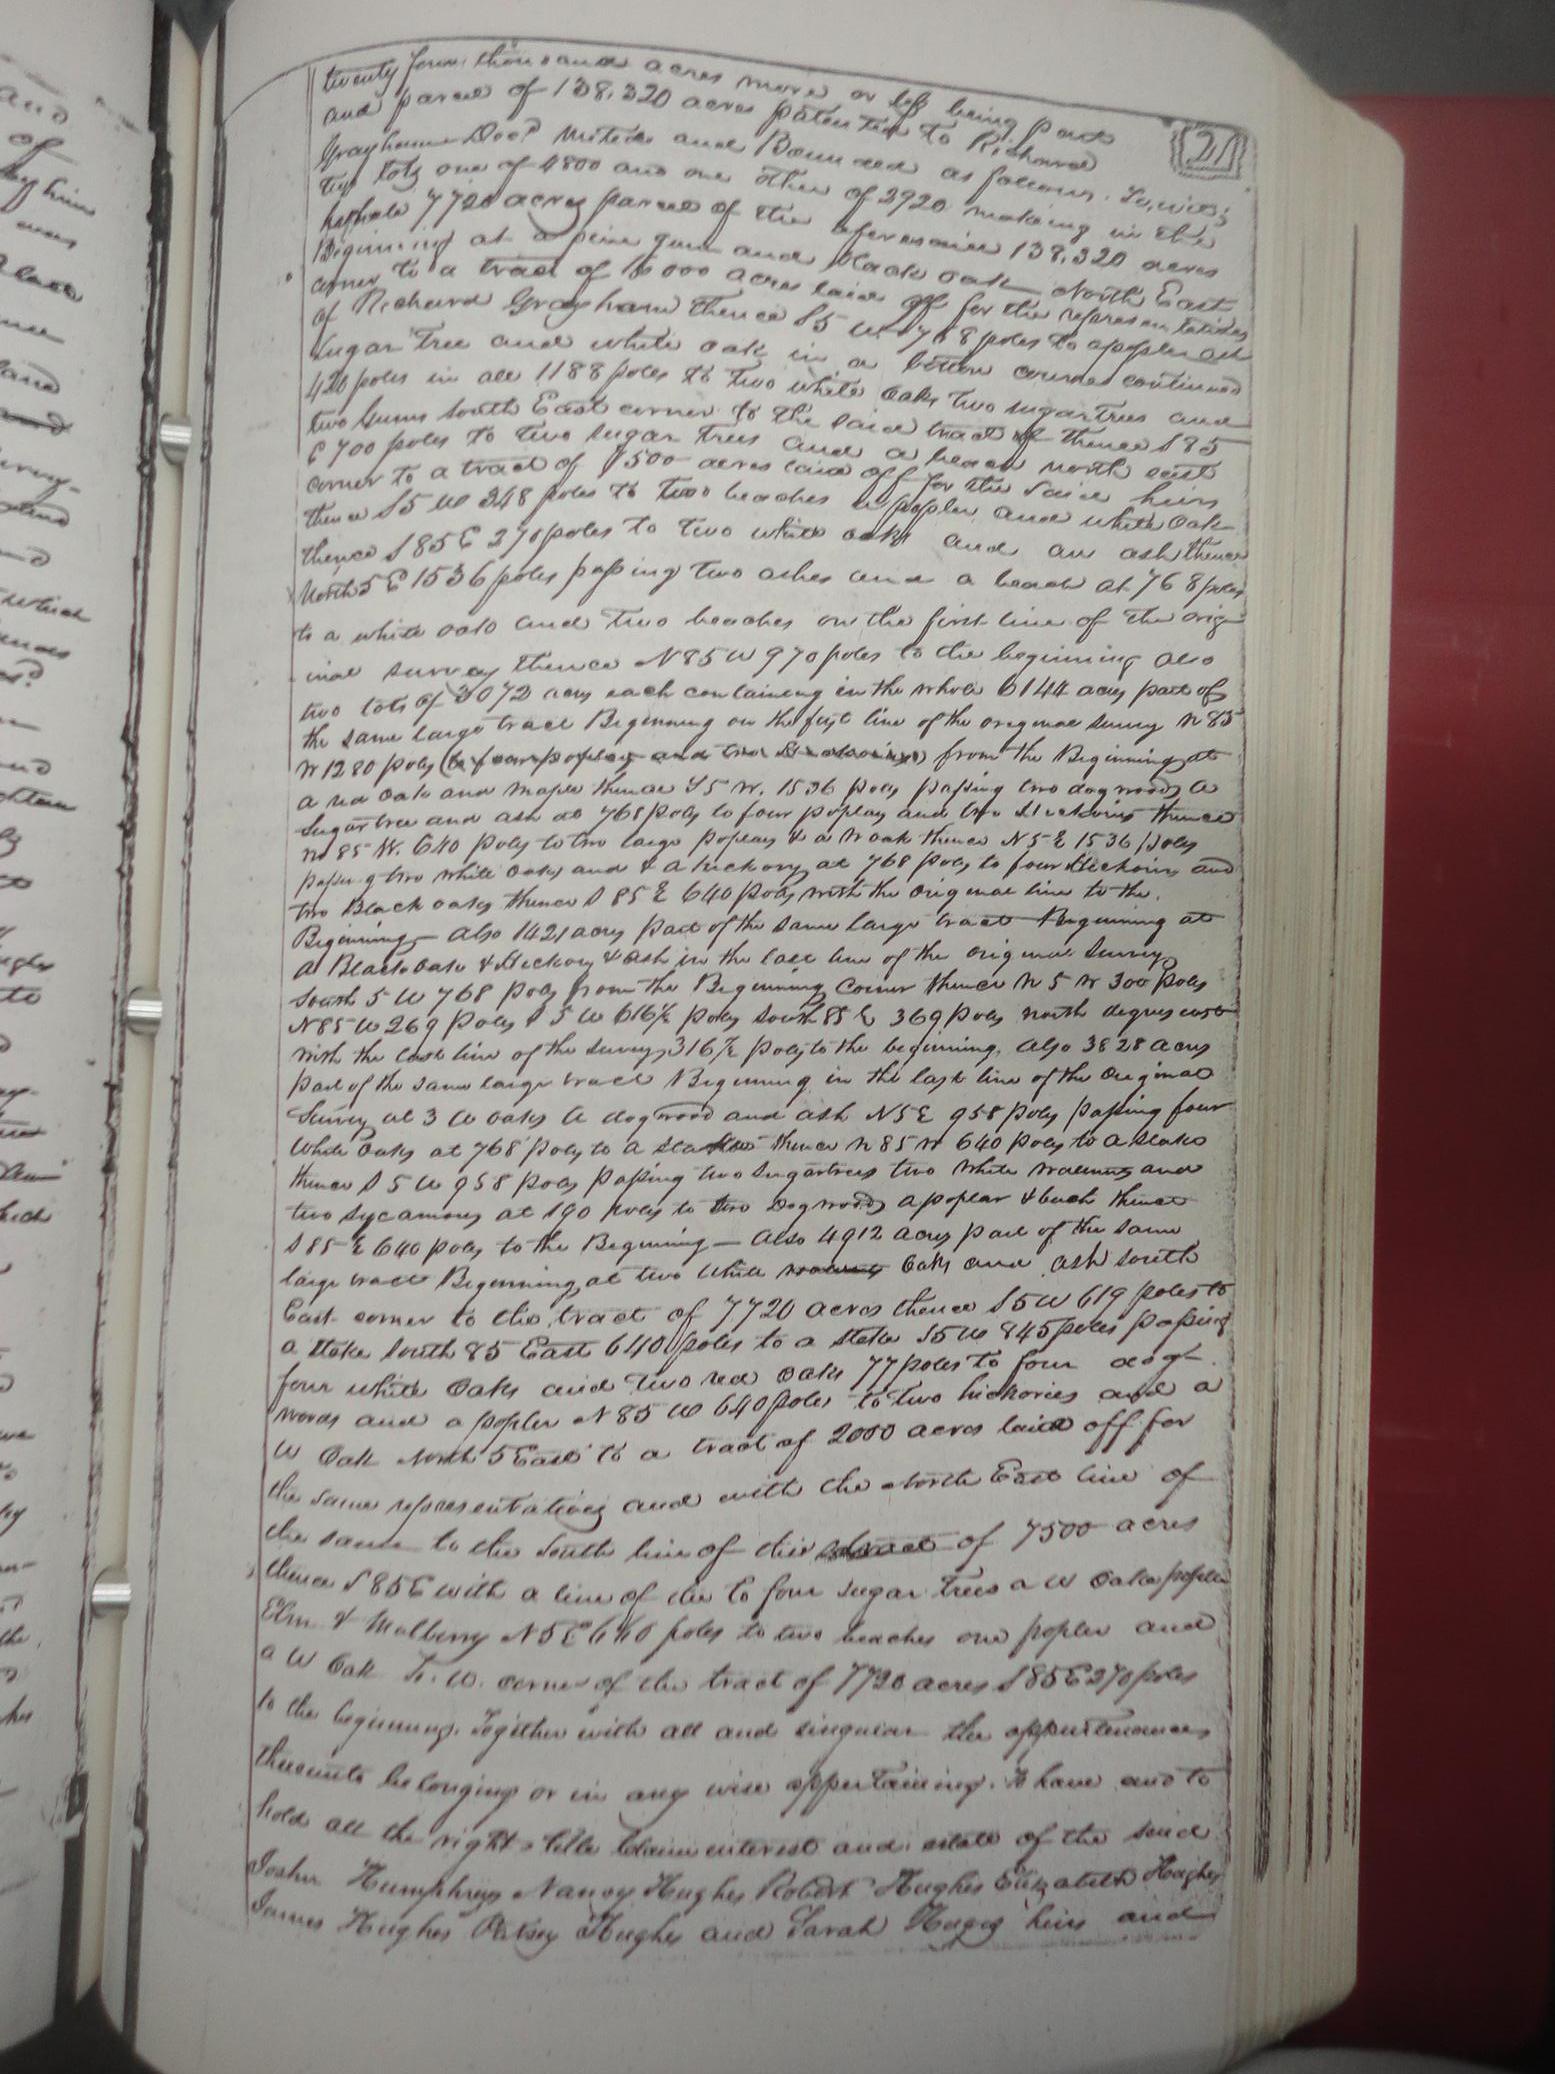 twenty four thousand acres more or less being part
and parcel of 138,320 acres patented to Richard
21
Grayham Decd. and Bounded as follows. To, wit,
two lots one of 4800 and one other of 2920 making in the
whole 7720 acres parcel of the aforesaid 138,320 acres
Beginning at a pine gum and black oak North East
corner to a tract of acres laid off for the representatives
of Richard Grayham thence S5 W 768 poles to a popler ash
sugar Tree and white oak in a bottom courses continued
420 poles in all 1188 poles to two white oaks two sugar trees and
two Gums South East corner to the said tract thence S85
E 700 poles to two sugar trees and a beach north east
corner to a tract of 7500 acres laid off for the said heirs
thence S5 W 348 poles to two beaches a popler and white oak
thence S85 E 270 poles to two white oaks and an ash thence
North 5 E 1536 poles passing two ashes and a beach at 768 poles
to a white oak and two beaches on the first line of the orig-
inal survey thence N85 W 970 poles to the beginning also
two lots of 3072 acres each containing in the whole 6144 acres part of
the same large tract Beginning on the first line of the original survey N 85
W 1280 poles (to four poplars and two Hickories) from the Beginning at
a red Oak and maple thence S5 W. 1536 poles passing two dogwoods a
Sugartree and ash at 768 poles to four poplars and two Hickories thence
N 85 W. 640 poles to two large poplars & a W oak thence N5 E 1536 poles
passing two white oaks and & a hickory at 768 poles to four Hickories and
two Black oaks thence S 85 E 640 poles with the original line to the
Beginning — Also 1421 acres part of the same large tract Beginning at
a Black oak & Hickory & ash in the last line of the original Survey
South 5 W 768 poles from the Beginning Corner thence N 5 W 300 poles
N85 W 269 poles S 5 W 616½ poles South 85 E 369 poles north degrees east
with the last line of the survey 316½ poles to the beginning, Also 3828 acres
part of the same large tract Beginning in the last line of the Original
Survey at 3 W oaks a dogwood and ash N5 E 958 poles passing four
White Oaks at 768 poles to a stake thence N 85 W 640 poles to a stake
thence S 5 W 958 poles passing two Sugartrees two White walnuts and
two sycamores at 190 poles to two Dogwoods a poplar & beech thence
S 85 E 640 poles to the Beginning — Also 4912 acres part of the same
large tract Beginning at two White Oaks and ash South
East corner to the tract of 7720 acres thence S5 W 619 poles to
a stake South 85 East 640 poles to a stake S5 W 845 poles passing
four white oaks and two red oaks 77 poles to four dog-
woods and a popler N 85 W 640 poles to two hickories and a
W Oak North 5 East to a tract of 2000 acres laid off for
the same representatives and with the North East line of
the same to the South line of their tract of 7500 acres
thence S85 E with a line of to four sugar trees a W Oak popler
Elm & Mulberry N5 E 640 poles to two beaches one popler and
a W Oak S. W. corner of the tract of 7720 acres S85 E 270 poles
to the beginning. Together with all and singular the appurtenances
thereunto belonging or in any wise appertaining. To have and to
hold all the right title claim interest and estate of the said
Joshua Humphreys Nancy Hughes Robert Hughes Elizabeth Hughes
James Hughes Patsey Hughes and Sarah heirs and